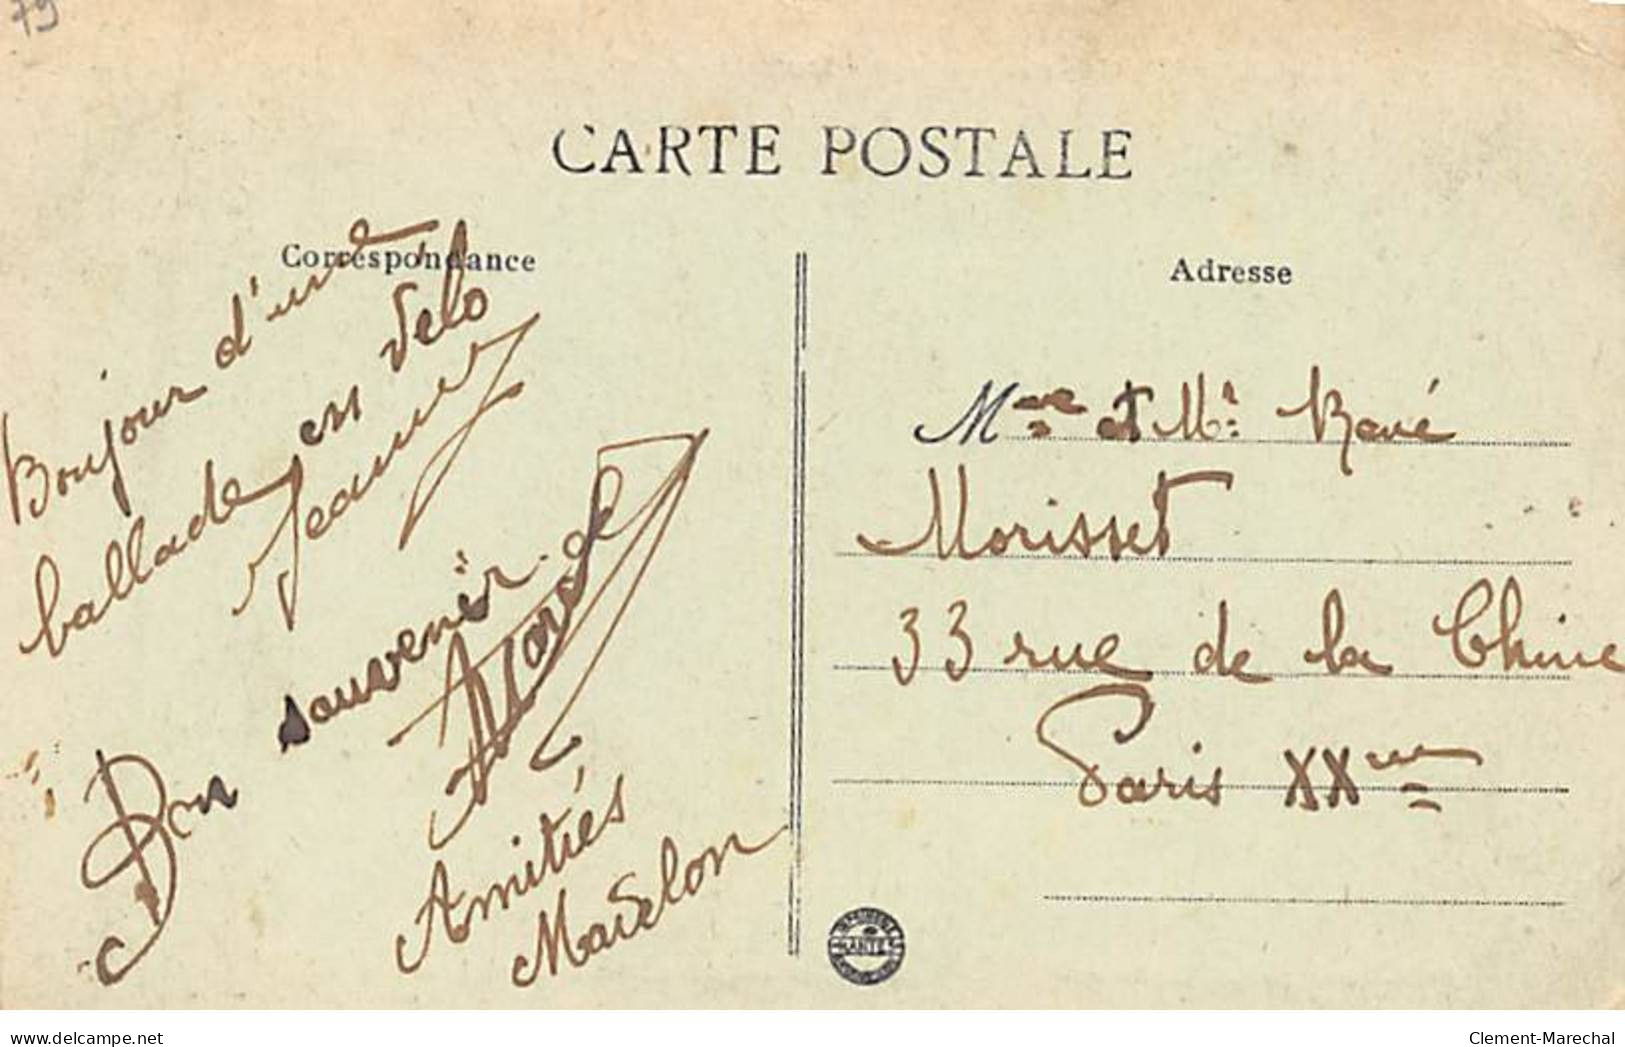 79
CARTE POSTALE
Correspondance
Bonjour d'une
ballade en vélo
Jeanne
Bon souvenir de
Marcel
Amitiés
Madelon
Adresse
Mme et Mr René
Morisset
33 rue de la Chine
Paris XXme
NANTES
www.delcampe.net
Clement-Marechal